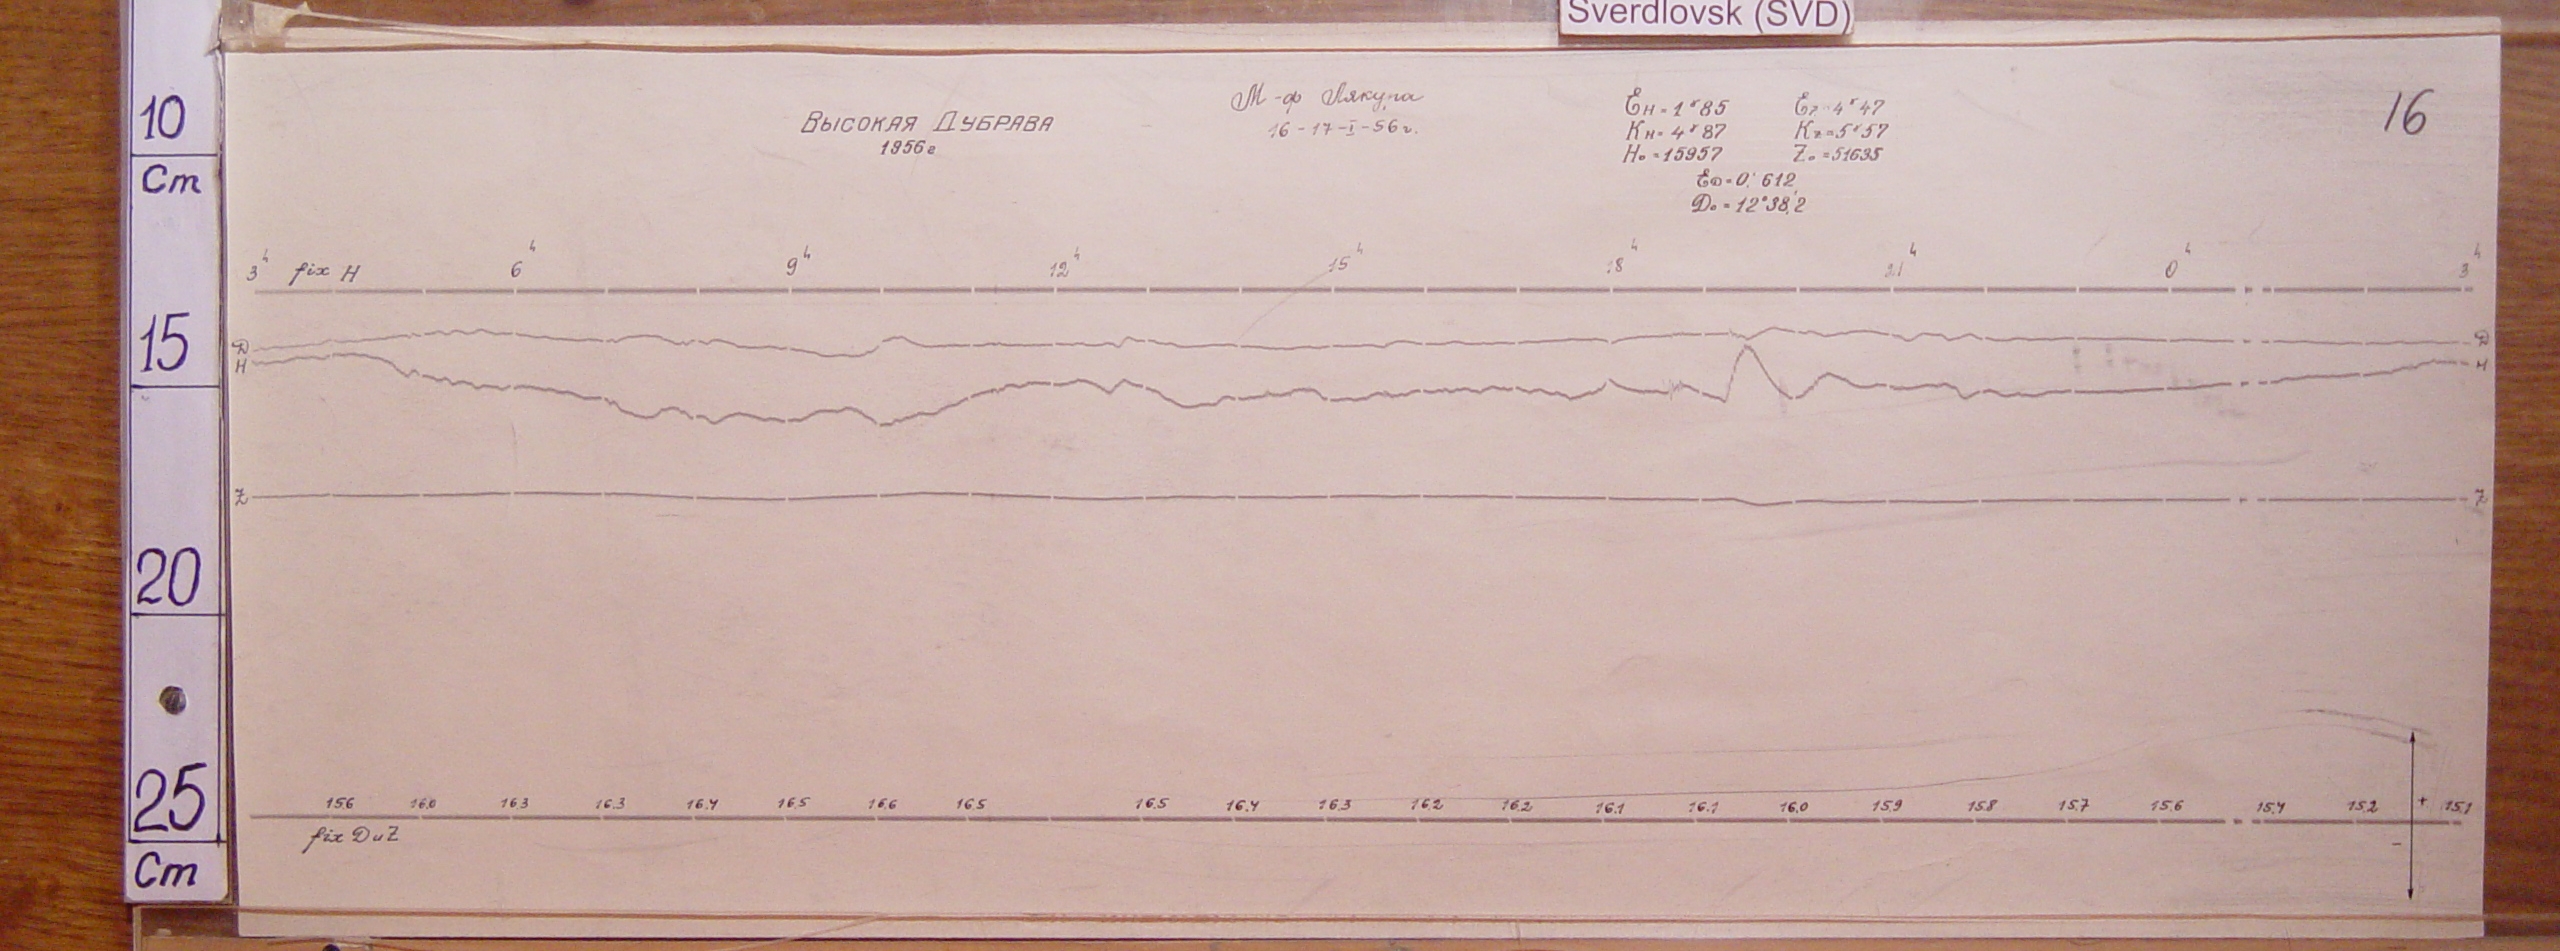 Sverdlovsk (SVD)
10
Cm
15
20
25
Cm
Высокая Дубрава
1956г
М-ф Лякура
16-17-I-56г.
Eн=1ᵞ85 Ez=4ᵞ47
Kн=4ᵞ87 Kz=5ᵞ57
H₀=15957 Z₀=51635
ED=0'.612
D₀=12°38,'2
16
3ʰ fix H 6ʰ 9ʰ 12ʰ 15ʰ 18ʰ 21ʰ 0ʰ 3ʰ
D D
H H
Z Z
15.6 16.0 16.3 16.3 16.4 16.5 16.6 16.5 16.5 16.4 16.3 16.2 16.2 16.1 16.1 16.0 15.9 15.8 15.7 15.6 15.4 15.2 + 15.1
fix D и Z
-